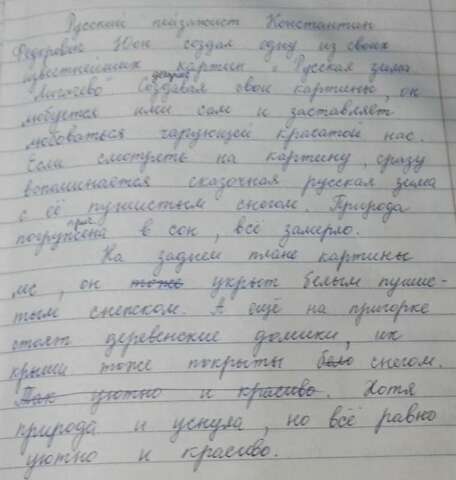 Русский пейзажист Константин
Фёдорович Юон создал одну из своих
известнейших картин „Русская зима.
Лигачево". Создавая свои картины, он
любуется ими сам и заставляет
любоваться чарующей красатой нас.
Если смотреть на картину, сразу
вспоминается сказочная русская зима
с её пушистым снегом. Природа
погружена в сон, всё замерло.
На заднем плане картины
лес, он тоже укрыт белым пушис-
тым снежком. А ещё на пригорке
стоят деревенские домики, их
крыши тоже покрыты бело снегом.
Так уютно и красиво. Хотя
природа и уснула, но всё равно
уютно и красиво.